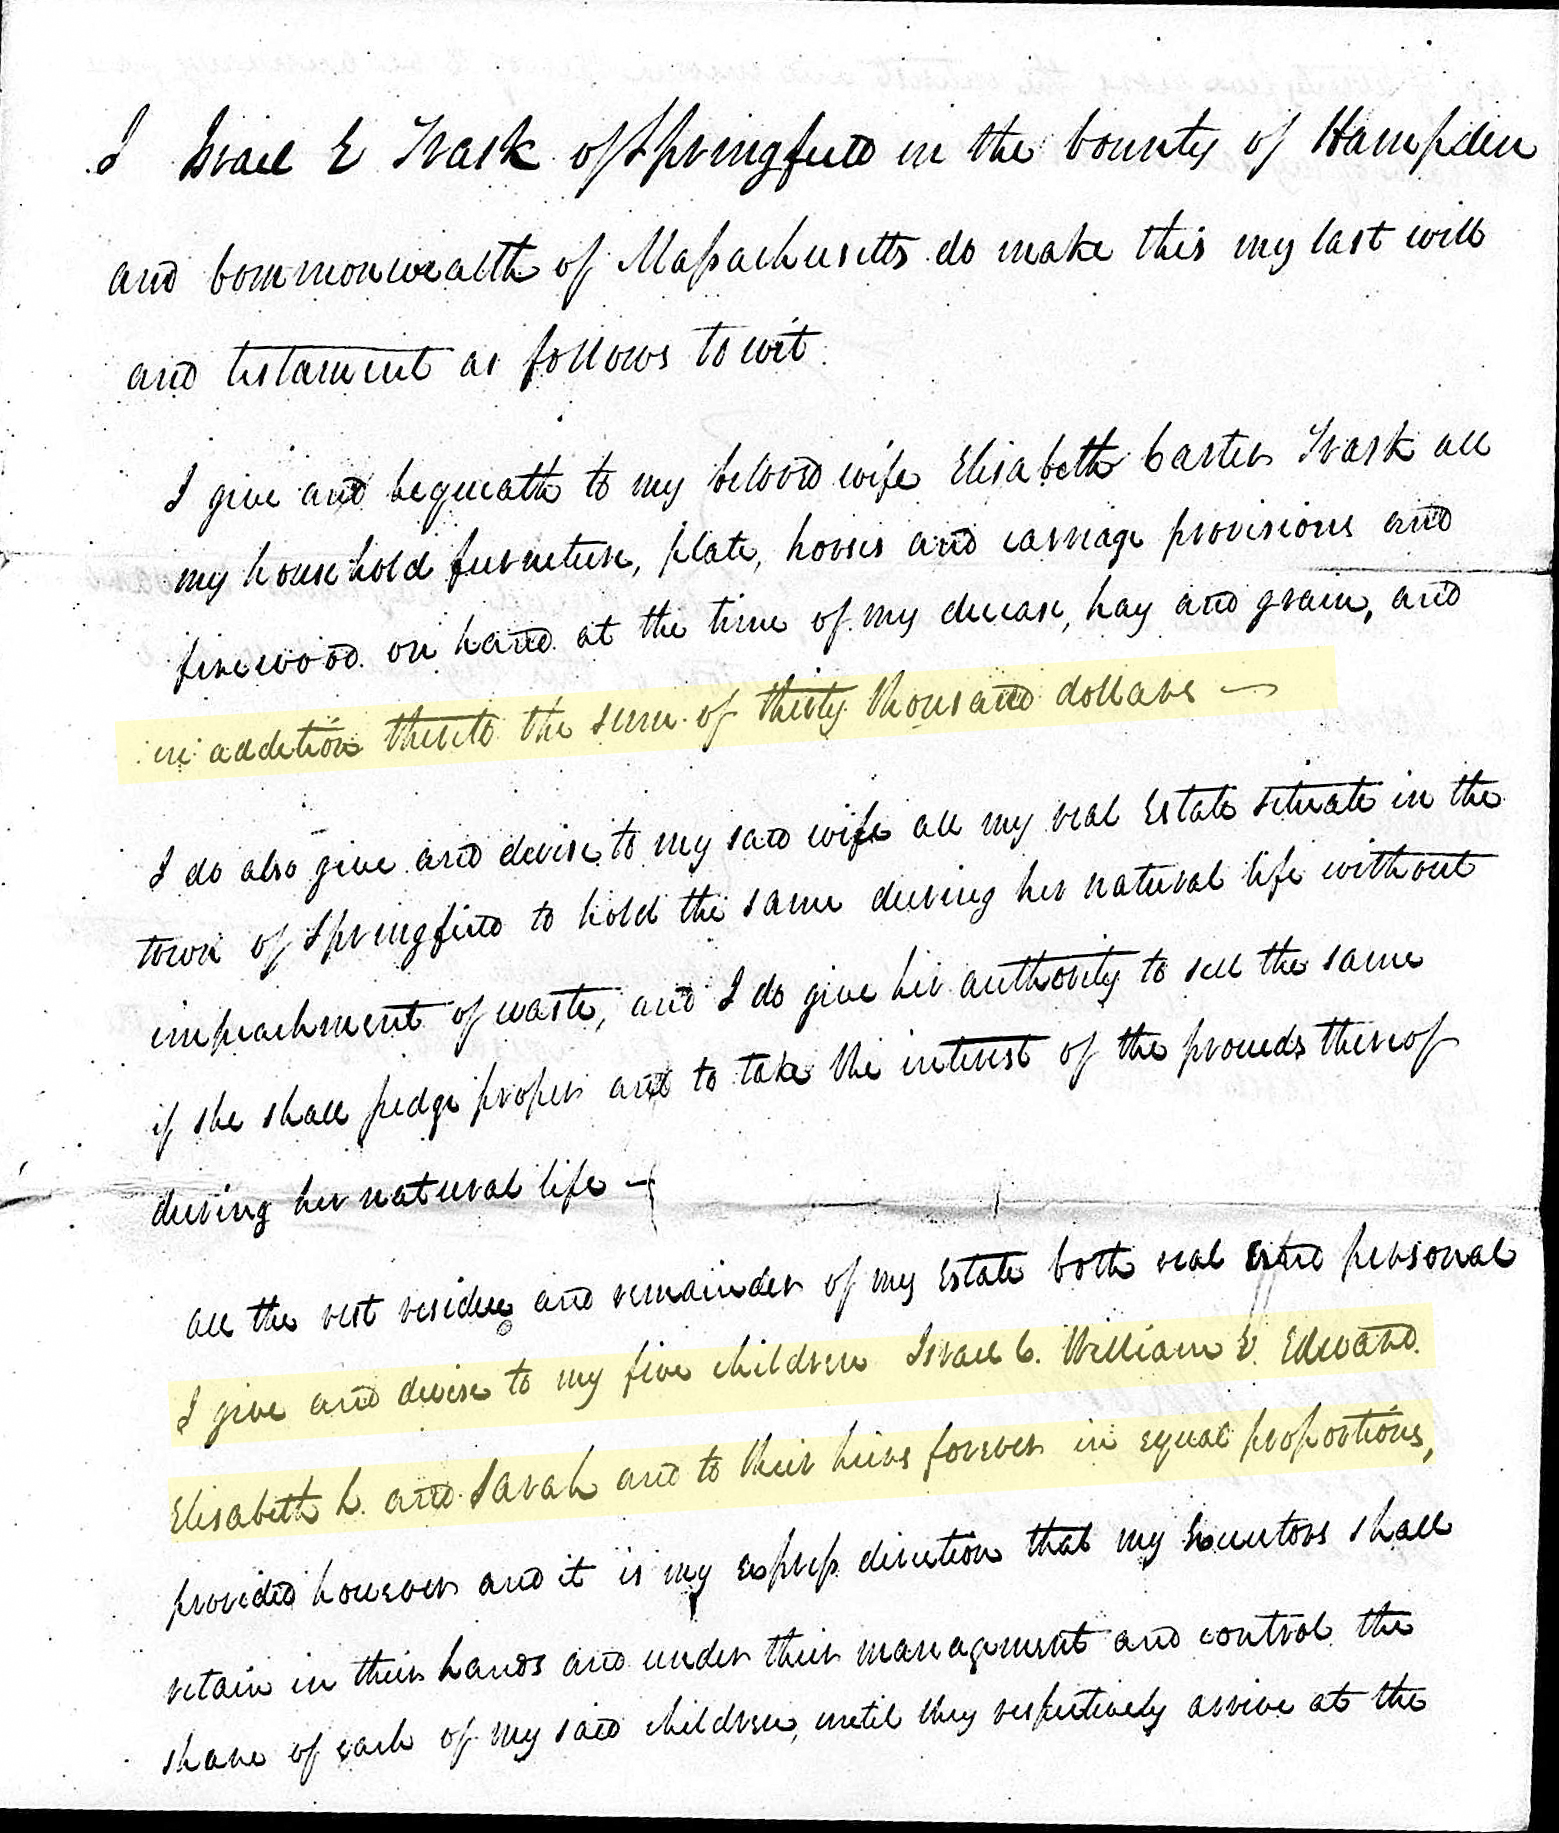 I Israel E Trask of Springfield in the County of Hampden
and Commonwealth of Massachusetts do make this my last will
and testament as follows to wit.
I give and bequeath to my beloved wife Elisabeth Carter Trask all
my household furniture, plate, horses and carriage provisions and
firewood on hand at the time of my decease, hay and grain, and
in addition thereto the sum of thirty thousand dollars —
I do also give and devise to my said wife all my real Estate situate in the
town of Springfield to hold the same during her natural life without
impeachment of waste, and I do give her authority to sell the same
if she shall judge proper and to take the interest of the proceeds thereof
during her natural life —
all the rest residue and remainder of my Estate both real and personal
I give and devise to my five children Israel C. William E. Edward.
Elisabeth L. and Sarah and to their heirs forever in equal proportions,
provided however and it is my express direction that my Executors shall
retain in their hands and under their management and control the
share of each of my said children, until they respectively arrive at the